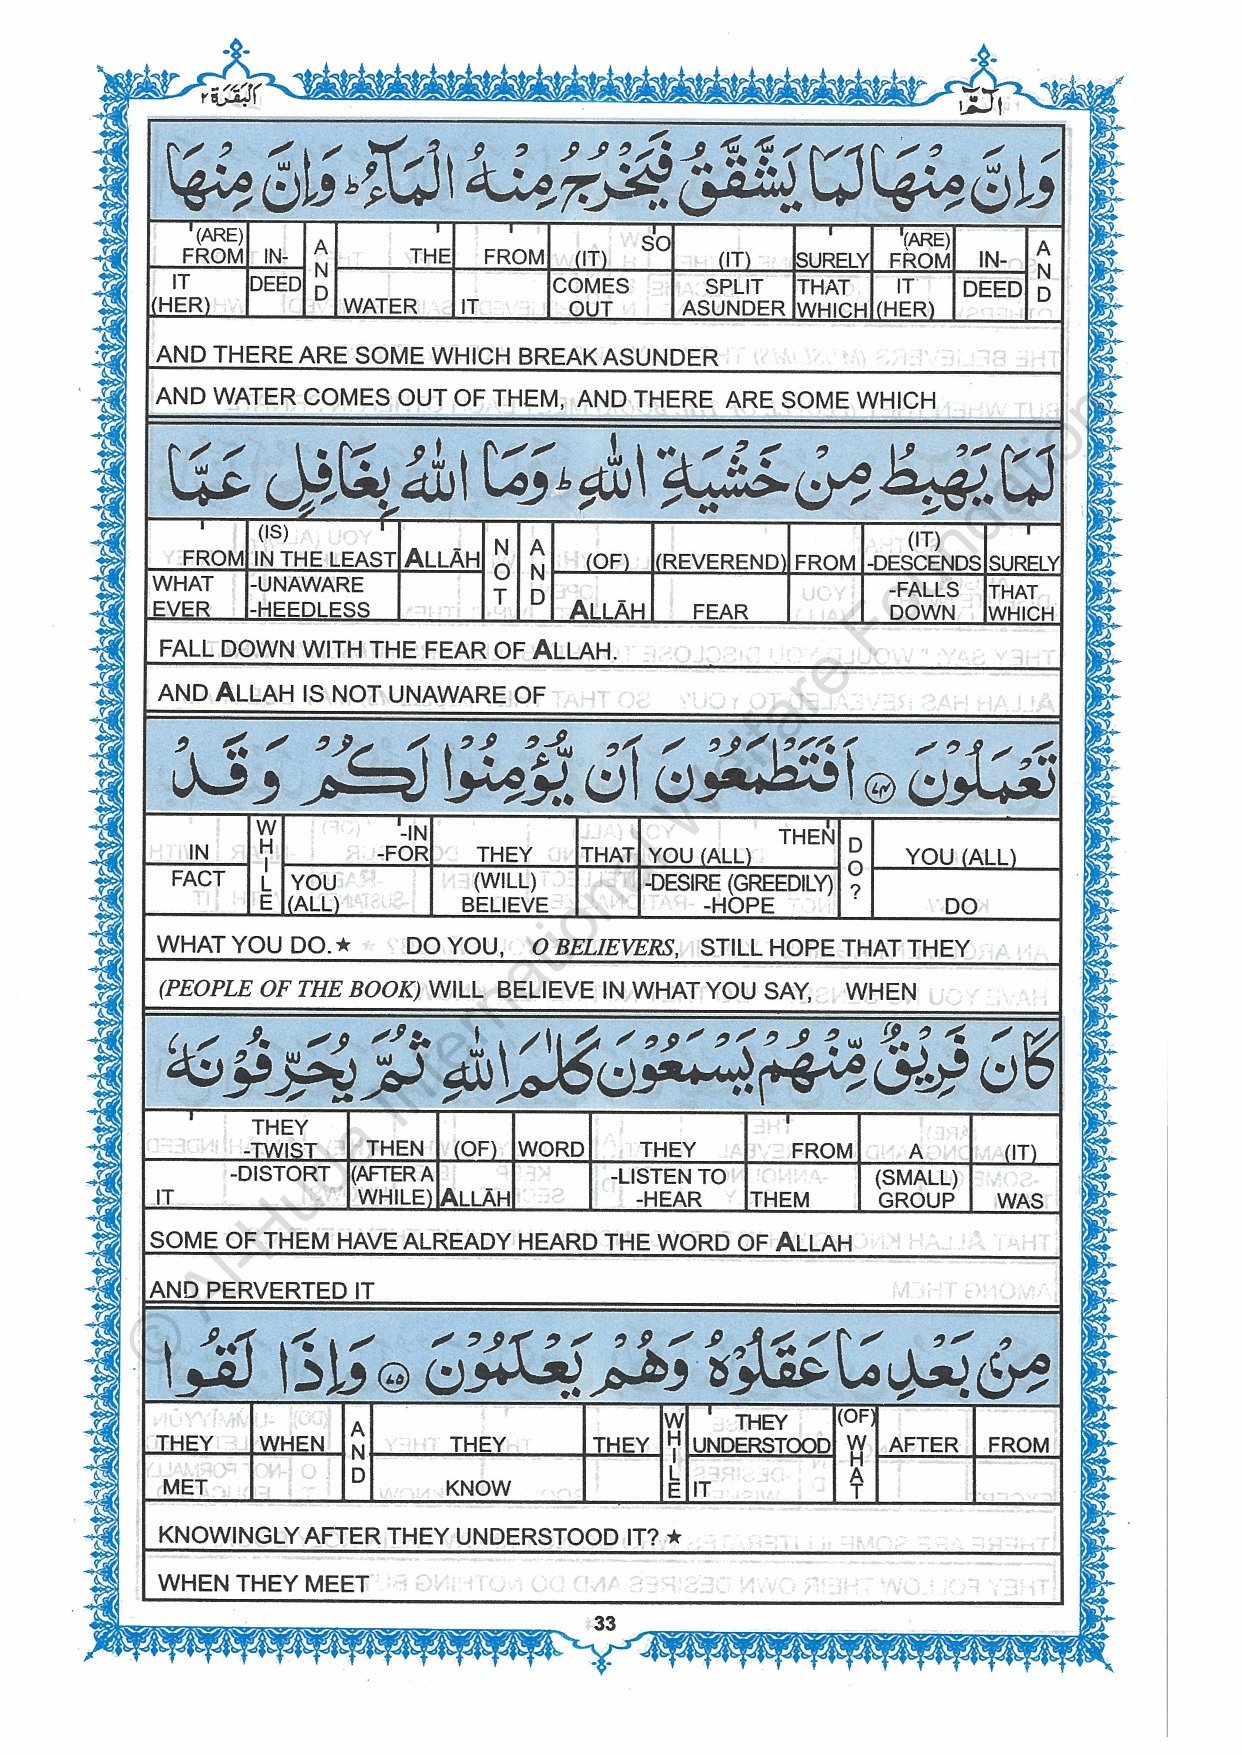 البقرة ٢
الٓمّٓ ١
وَاِنَّ مِنْهَا لَمَا يَشَّقَّقُ فَيَخْرُجُ مِنْهُ الْمَآءُ ؕ وَاِنَّ مِنْهَا
(ARE) FROM IN- AND THE FROM (IT) SO (IT) SURELY (ARE) FROM IN- AND
IT (HER) DEED WATER IT COMES OUT SPLIT ASUNDER THAT WHICH IT (HER) DEED
AND THERE ARE SOME WHICH BREAK ASUNDER
AND WATER COMES OUT OF THEM, AND THERE ARE SOME WHICH
لَمَا يَهْبِطُ مِنْ خَشْيَةِ اللّٰهِ ؕ وَمَا اللّٰهُ بِغَافِلٍ عَمَّا
FROM (IS) IN THE LEAST ALLĀH NOT AND (OF) (REVEREND) FROM (IT) -DESCENDS SURELY
WHAT EVER -UNAWARE -HEEDLESS ALLĀH FEAR -FALLS DOWN THAT WHICH
FALL DOWN WITH THE FEAR OF ALLAH.
AND ALLAH IS NOT UNAWARE OF
تَعْمَلُوْنَ ﴿٧٤﴾ اَفَتَطْمَعُوْنَ اَنْ يُّؤْمِنُوْا لَكُمْ وَقَدْ
IN WHILE -IN -FOR THEY THAT YOU (ALL) THEN DO? YOU (ALL)
FACT YOU (ALL) (WILL) BELIEVE -DESIRE (GREEDILY) -HOPE DO
WHAT YOU DO.★ DO YOU, O BELIEVERS, STILL HOPE THAT THEY
(PEOPLE OF THE BOOK) WILL BELIEVE IN WHAT YOU SAY, WHEN
كَانَ فَرِيْقٌ مِّنْهُمْ يَسْمَعُوْنَ كَلٰمَ اللّٰهِ ثُمَّ يُحَرِّفُوْنَهٗ
THEY -TWIST THEN (OF) WORD THEY FROM A (IT)
IT -DISTORT (AFTER A WHILE) ALLĀH -LISTEN TO -HEAR THEM (SMALL) GROUP WAS
SOME OF THEM HAVE ALREADY HEARD THE WORD OF ALLAH
AND PERVERTED IT
مِنْۢ بَعْدِ مَا عَقَلُوْهُ وَهُمْ يَعْلَمُوْنَ ﴿٧٥﴾ وَاِذَا لَقُوا
THEY WHEN AND THEY THEY WHILE THEY UNDERSTOOD (OF) WHAT AFTER FROM
MET KNOW IT
KNOWINGLY AFTER THEY UNDERSTOOD IT? ★
WHEN THEY MEET
33
© Al-Huda International Welfare Foundation